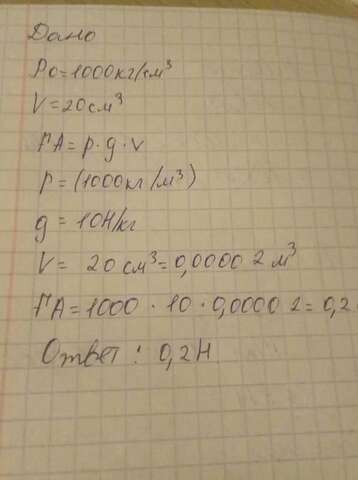 Дано
Ро=1000кг/см³
V=20см³
FA=p·g·v
P=(1000кг/м³)
g=10Н/кг
V= 20см³=0,00002м³
FA=1000·10·0,00002=0,2
Ответ: 0,2Н